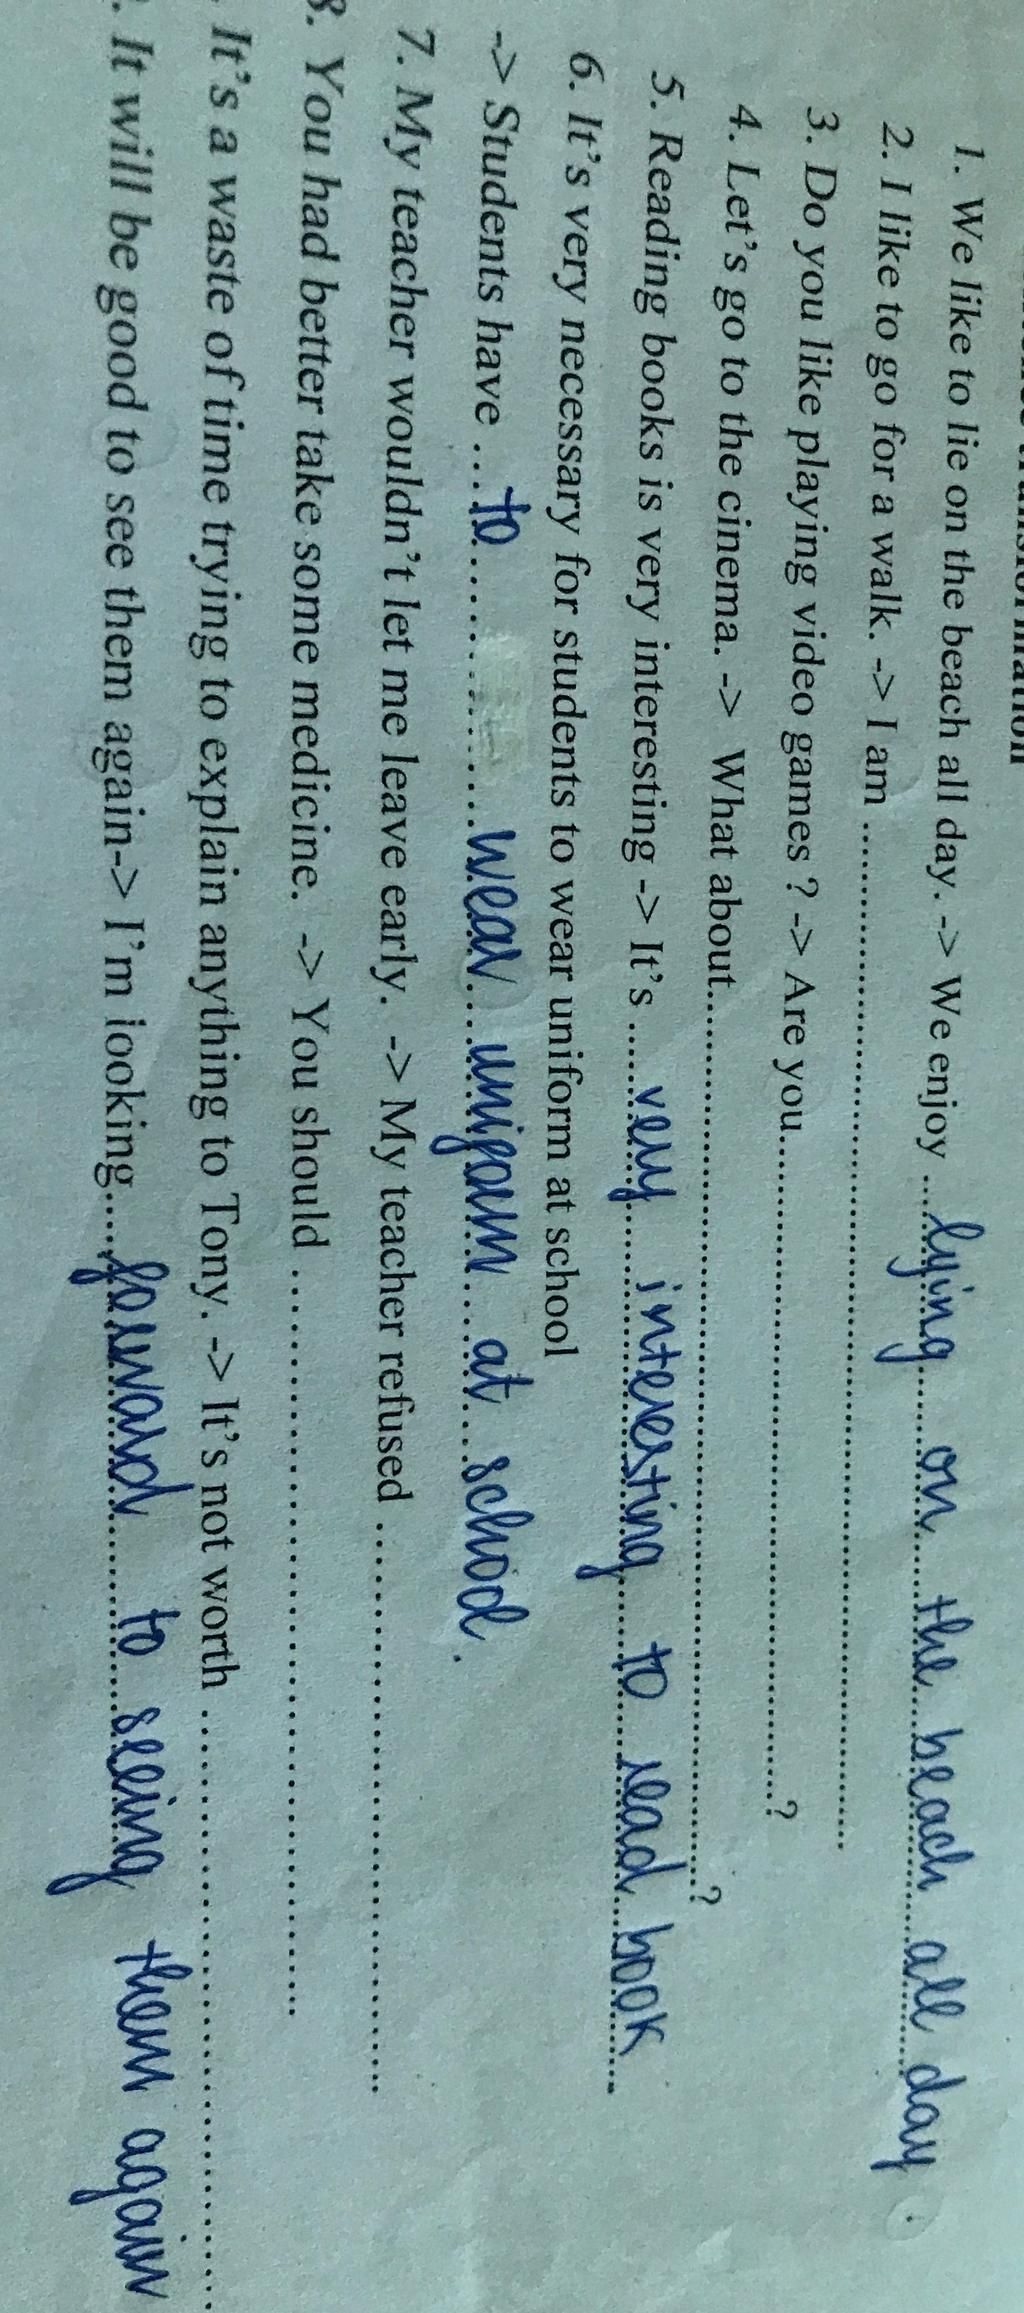 1. We like to lie on the beach all day. -> We enjoy ....lying......on......the...beach...all...day.
2. I like to go for a walk. -> I am ..........................................................................
3. Do you like playing video games ? -> Are you...............................................................?
4. Let's go to the cinema. -> What about...............................................................................?
5. Reading books is very interesting -> It's ......very......interesting......to......read...book......
6. It's very necessary for students to wear uniform at school
-> Students have ...to..................wear...uniform...at...school.
7. My teacher wouldn't let me leave early. -> My teacher refused ..................................................
8. You had better take some medicine. -> You should ..................................................................
It's a waste of time trying to explain anything to Tony. -> It's not worth ..................................................
. It will be good to see them again-> I'm iooking....forward......to......seeing them again